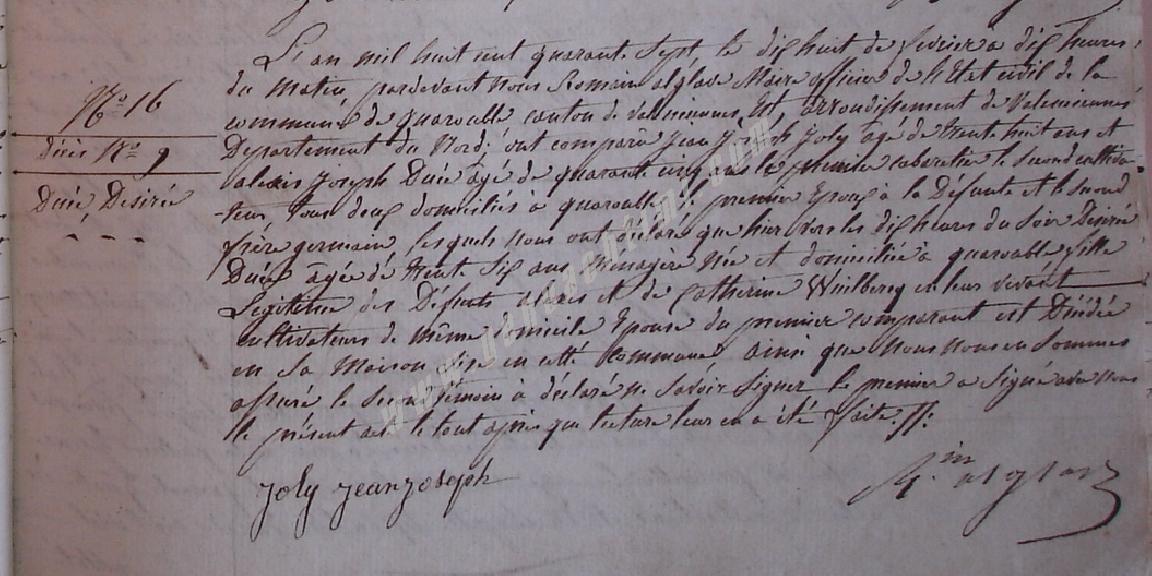 N° 16
Décès N° 9
Duée Desirée
L'an mil huit cent quarant Sept, le dix huit de fevrier à dix heures
du Matin, pardevant Nous Romain alglave Maire officier de l'Etat civil de la
commune de quarouble canton de Valenciennes Est, arrondissement de Valenciennes
Departement du Nord; ont comparu Jean Joseph Joly âgé de trente huit ans et
alexis Joseph Duée âgé de quarante cinq ans le premier cabaretier le second cultiva-
-teur, tous deux domiciliés à quarouble le premier Epoux à la Défunte et le second
frère germain, lesquels Nous ont déclaré que hier vers les dix heures du Soir Desirée
Duée âgée de trente Six ans Ménagere Née et domiciliée à quarouble fille
Legitime des Défunts alexis et de Catherine en leur vivant
cultivateurs de même domicile Epouse du premier comparant est Décédée
en Sa Maison Sise en cette commune ainsi que Nous nous en Sommes
assuré le Second témoin à déclaré ne Savoir Signer le premier a Signé avec nous
le présent acte le tout après que lecture leur en a été faite
Joly jean joseph
R.in alglave